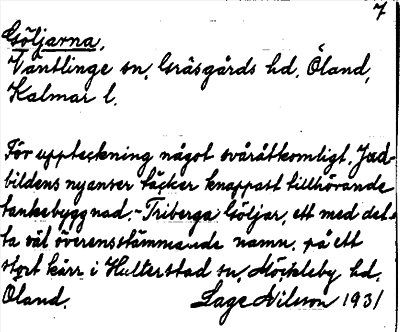 7
Göljarna.
Väntlinge sn, Gräsgårds hd. Öland,
Kalmar l.
För uppteckning något svåråtkomligt. Jord-
bildens nyanser täcker knappast tillhörande
tankebyggnad. - Triberga Göljar, ett med det-
ta väl överensstämmande namn, på ett
stort kärr i Hulterstad sn, Möckleby hd.
Öland. Lage Nilsson 1931